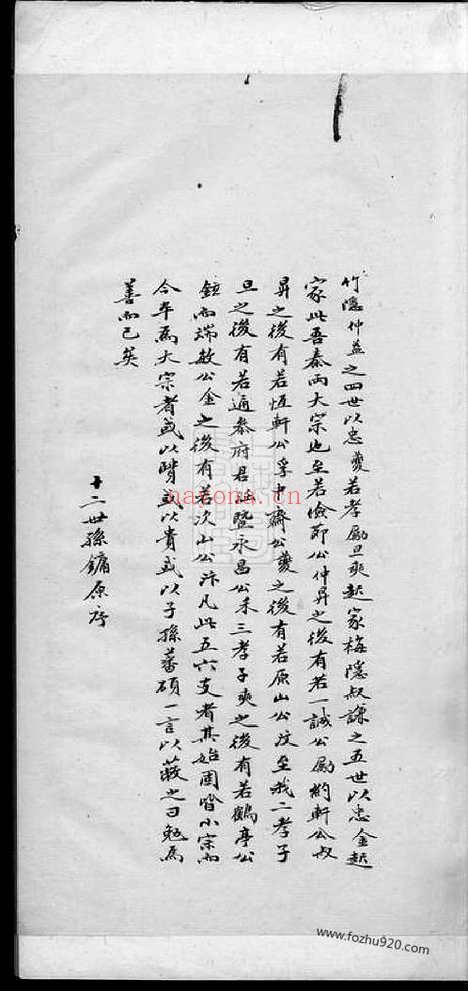 竹隱仲益之四世以忠夔若孝勵旦奭起家梅隱叔謙之五世以忠金起
家此吾秦兩大宗也至若儉節公仲昇之後有若一誠公勵約軒公叔
昇之後有若恆軒公孚中齋公夔之後有若原山公汶至我二孝子
旦之後有若通參府君 暨永昌公禾三孝子奭之後有若鶴亭公
鈺而端敏公金之後有若次山公汴凡此五六支者其始固皆小宗而
今卒為大宗者或以賢或以貴或以子孫蕃碩一言以蔽之曰勉為
善而已矣
十二世孫鏞原序
nayona.cn
www.fozhu920.com